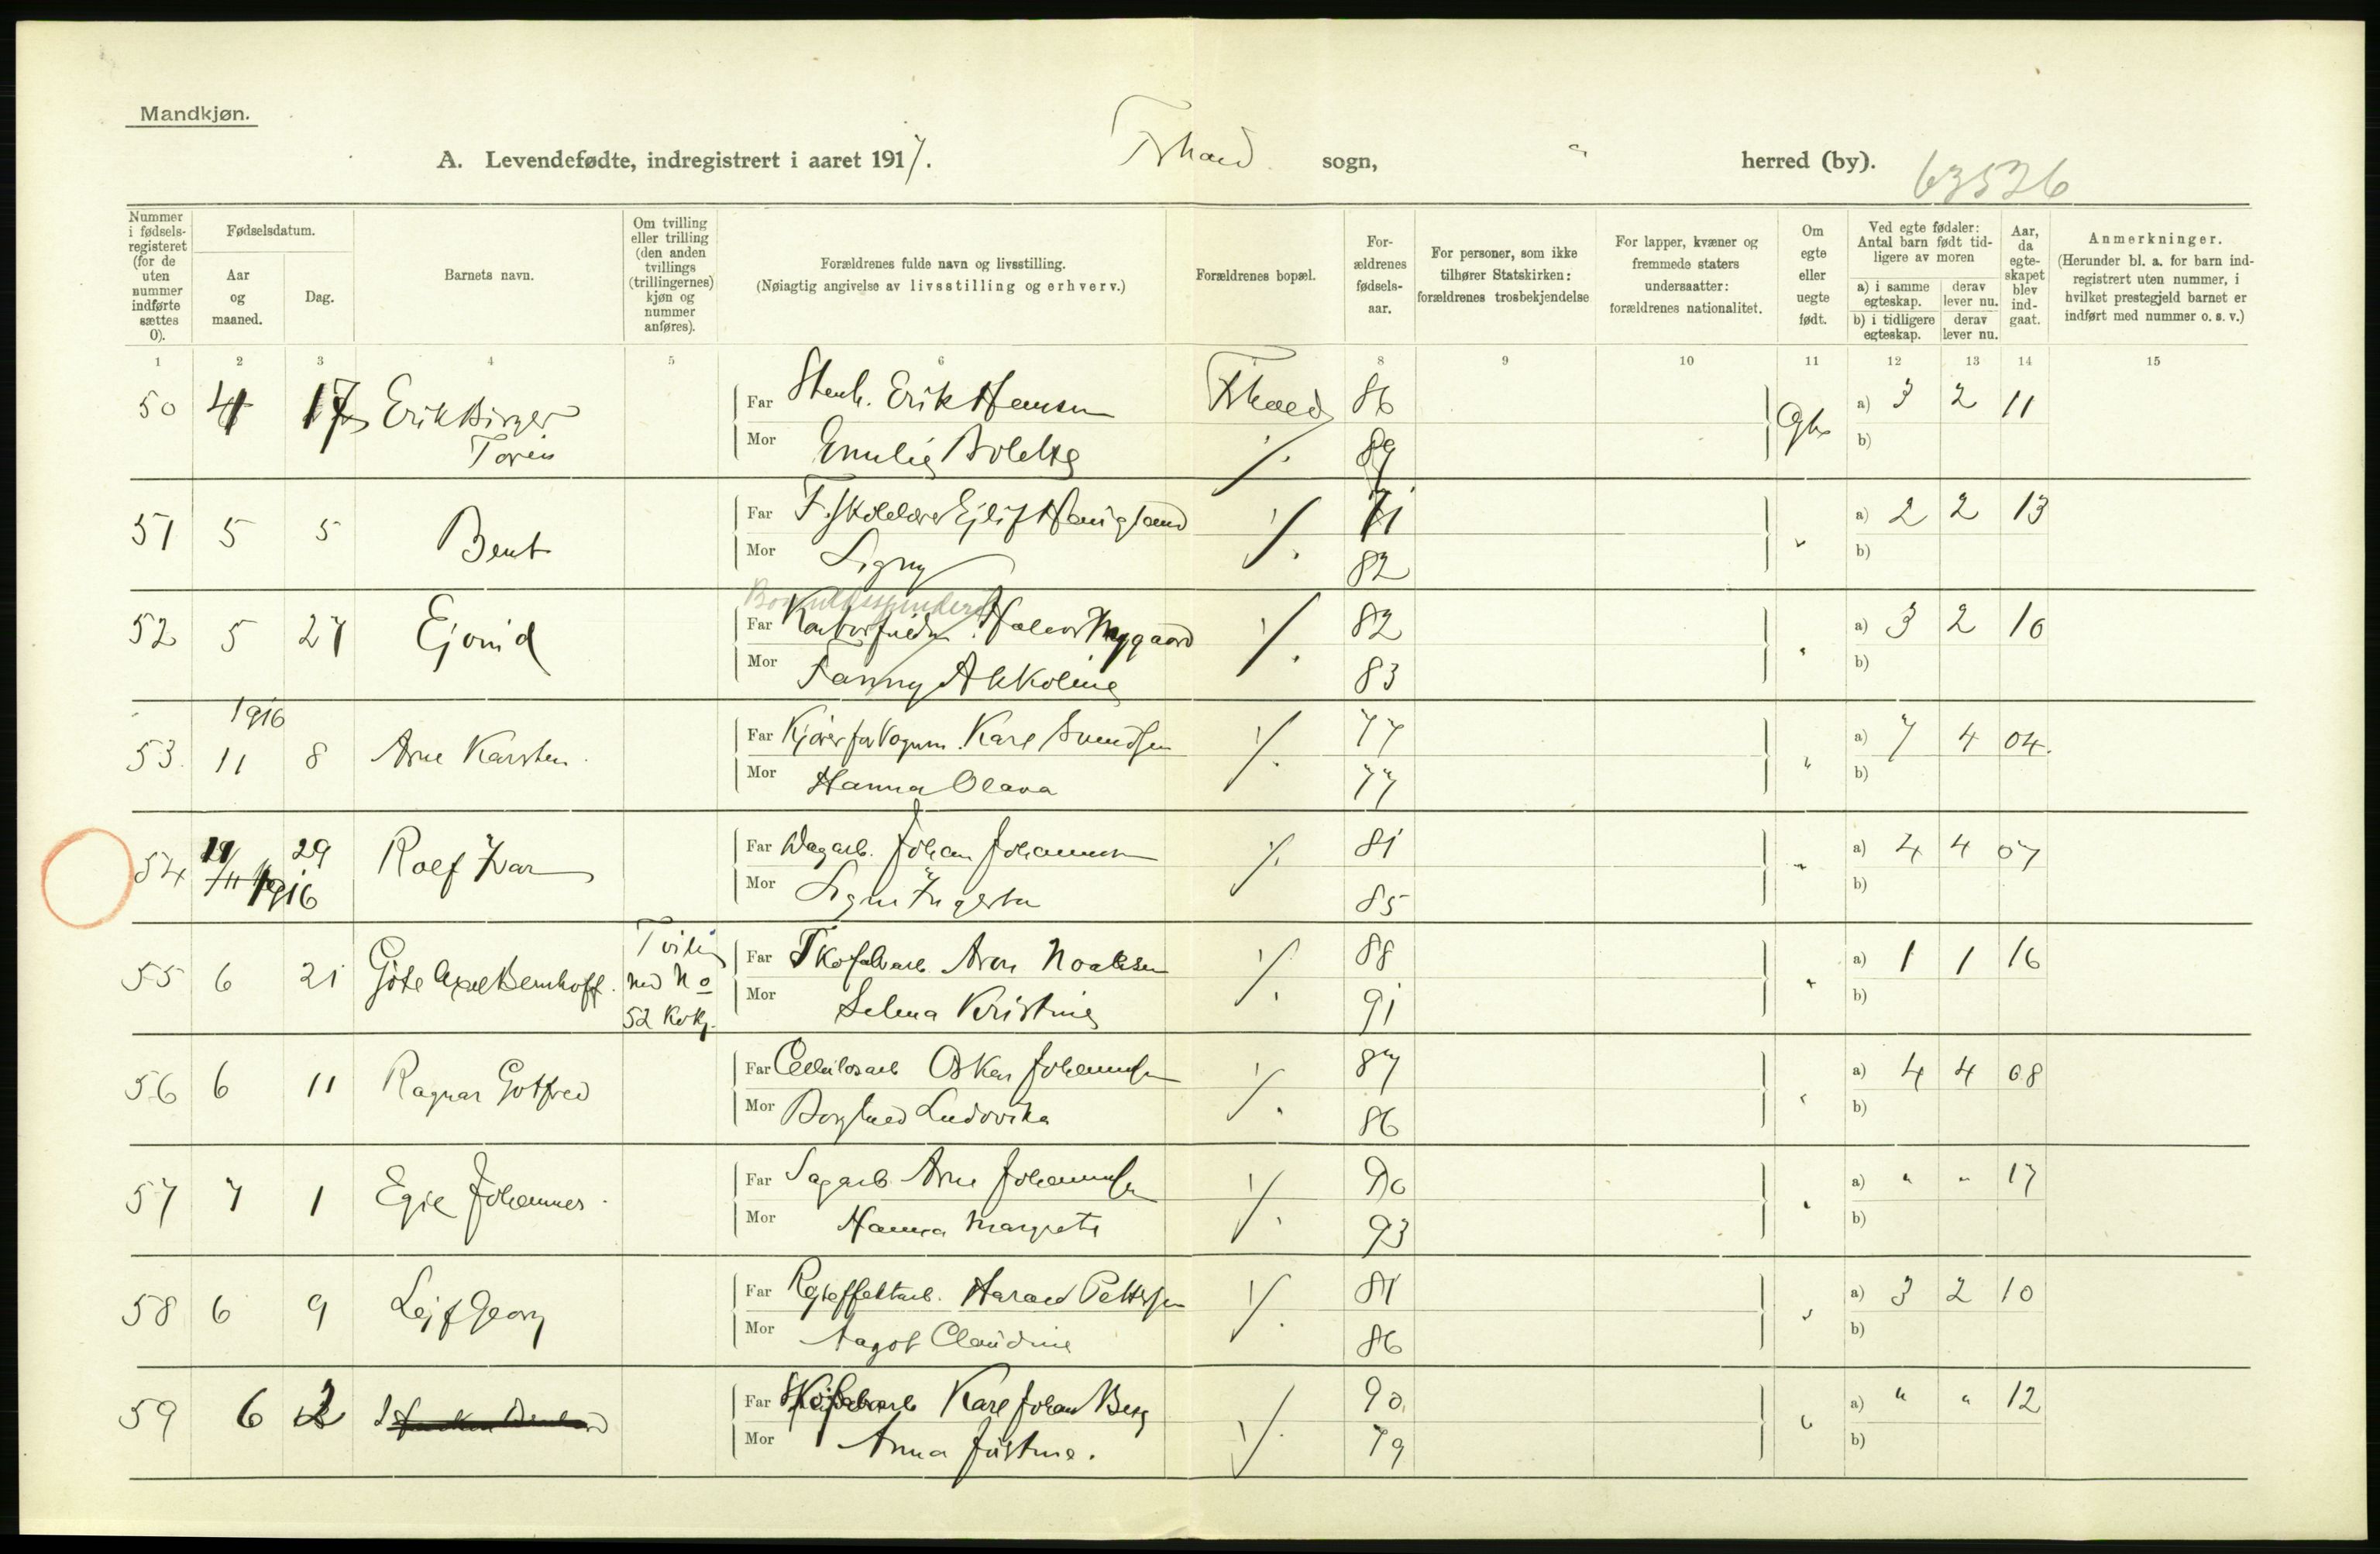 Mandkjøn.
A. Levendefødte, indregistrert i aaret 1917. Frhald sogn, " herred (by).
63526
Nummer i fødsels-registeret (for de uten nummer indførte sættes 0).
Fødselsdatum.
Aar og maaned.
Dag.
Barnets navn.
Om tvilling eller trilling (den anden tvillings (trillingernes) kjøn og nummer anføres).
Forældrenes fulde navn og livsstilling.
(Nøiagtig angivelse av livsstilling og erhverv.)
Forældrenes bopæl.
For-ældrenes fødsels-aar.
For personer, som ikke tilhører Statskirken: forældrenes trosbekjendelse
For lapper, kvæner og fremmede staters undersaatter: forældrenes nationalitet.
Om egte eller uegte født.
Ved egte fødsler: Antal barn født tid-ligere av moren
a) i samme egteskap.
derav lever nu.
b) i tidligere egteskap.
derav lever nu.
Aar, da egte-skapet blev ind-gaat.
Anmerkninger.
(Herunder bl. a. for barn ind-registrert uten nummer, i hvilket prestegjeld barnet er indført med nummer o. s. v.)
1 2 3 4 5 6 7 8 9 10 11 12 13 14 15
50 4 17 Erik Birger Far Stenh. Erik Hansen Frhald 86 a) 3 2 11
Mor Emilie ./. 89 b)
51 5 5 Bent Far F.skolelærer Ejlif Haugland ./. 71 " a) 2 2 13
Mor Signy 82 b)
Bomuldsspinderi
52 5 27 Ejvind Far Halvor Nygaard ./. 82 " a) 3 2 10
Mor Fanny 83 b)
1916
53. 11 8 Arne Karsten Far Karl Svendsen ./. 77 " a) 7 4 04.
Mor Hanna Olava 77 b)
54 29 Rolf Ivar Far Dagarb. Johan Johannesen ./. 81 " a) 4 4 07
1916 Mor Signe Ingerta 85 b)
55 6 21 Göte Axel Bernhoff. Tvill. med No 52 Kvkj. Far Skofabarb. Aron Noaksen ./. 88 " a) 1 1 16
Mor Selma Kristine 91 b)
56 6 11 Ragnar Gotfred Far Cellulosarb Oskar Johannesen ./. 87 " a) 4 4 08
Mor Borghild Ludovika 86 b)
57 7 1 Egil Johannes Far Sagarb. Arne Johannesen ./. 90 " a) " " 17
Mor Hanna Margrete 93 b)
58 6 9 Lejf Georg Far Harald Pettersen ./. 81 " a) 3 2 10
Mor Aagot Claudine 86 b)
59 6 2 Far Skofabarb Karl Johan Berg ./. 90. " a) " " 12
Mor Anna Justine. 79 b)